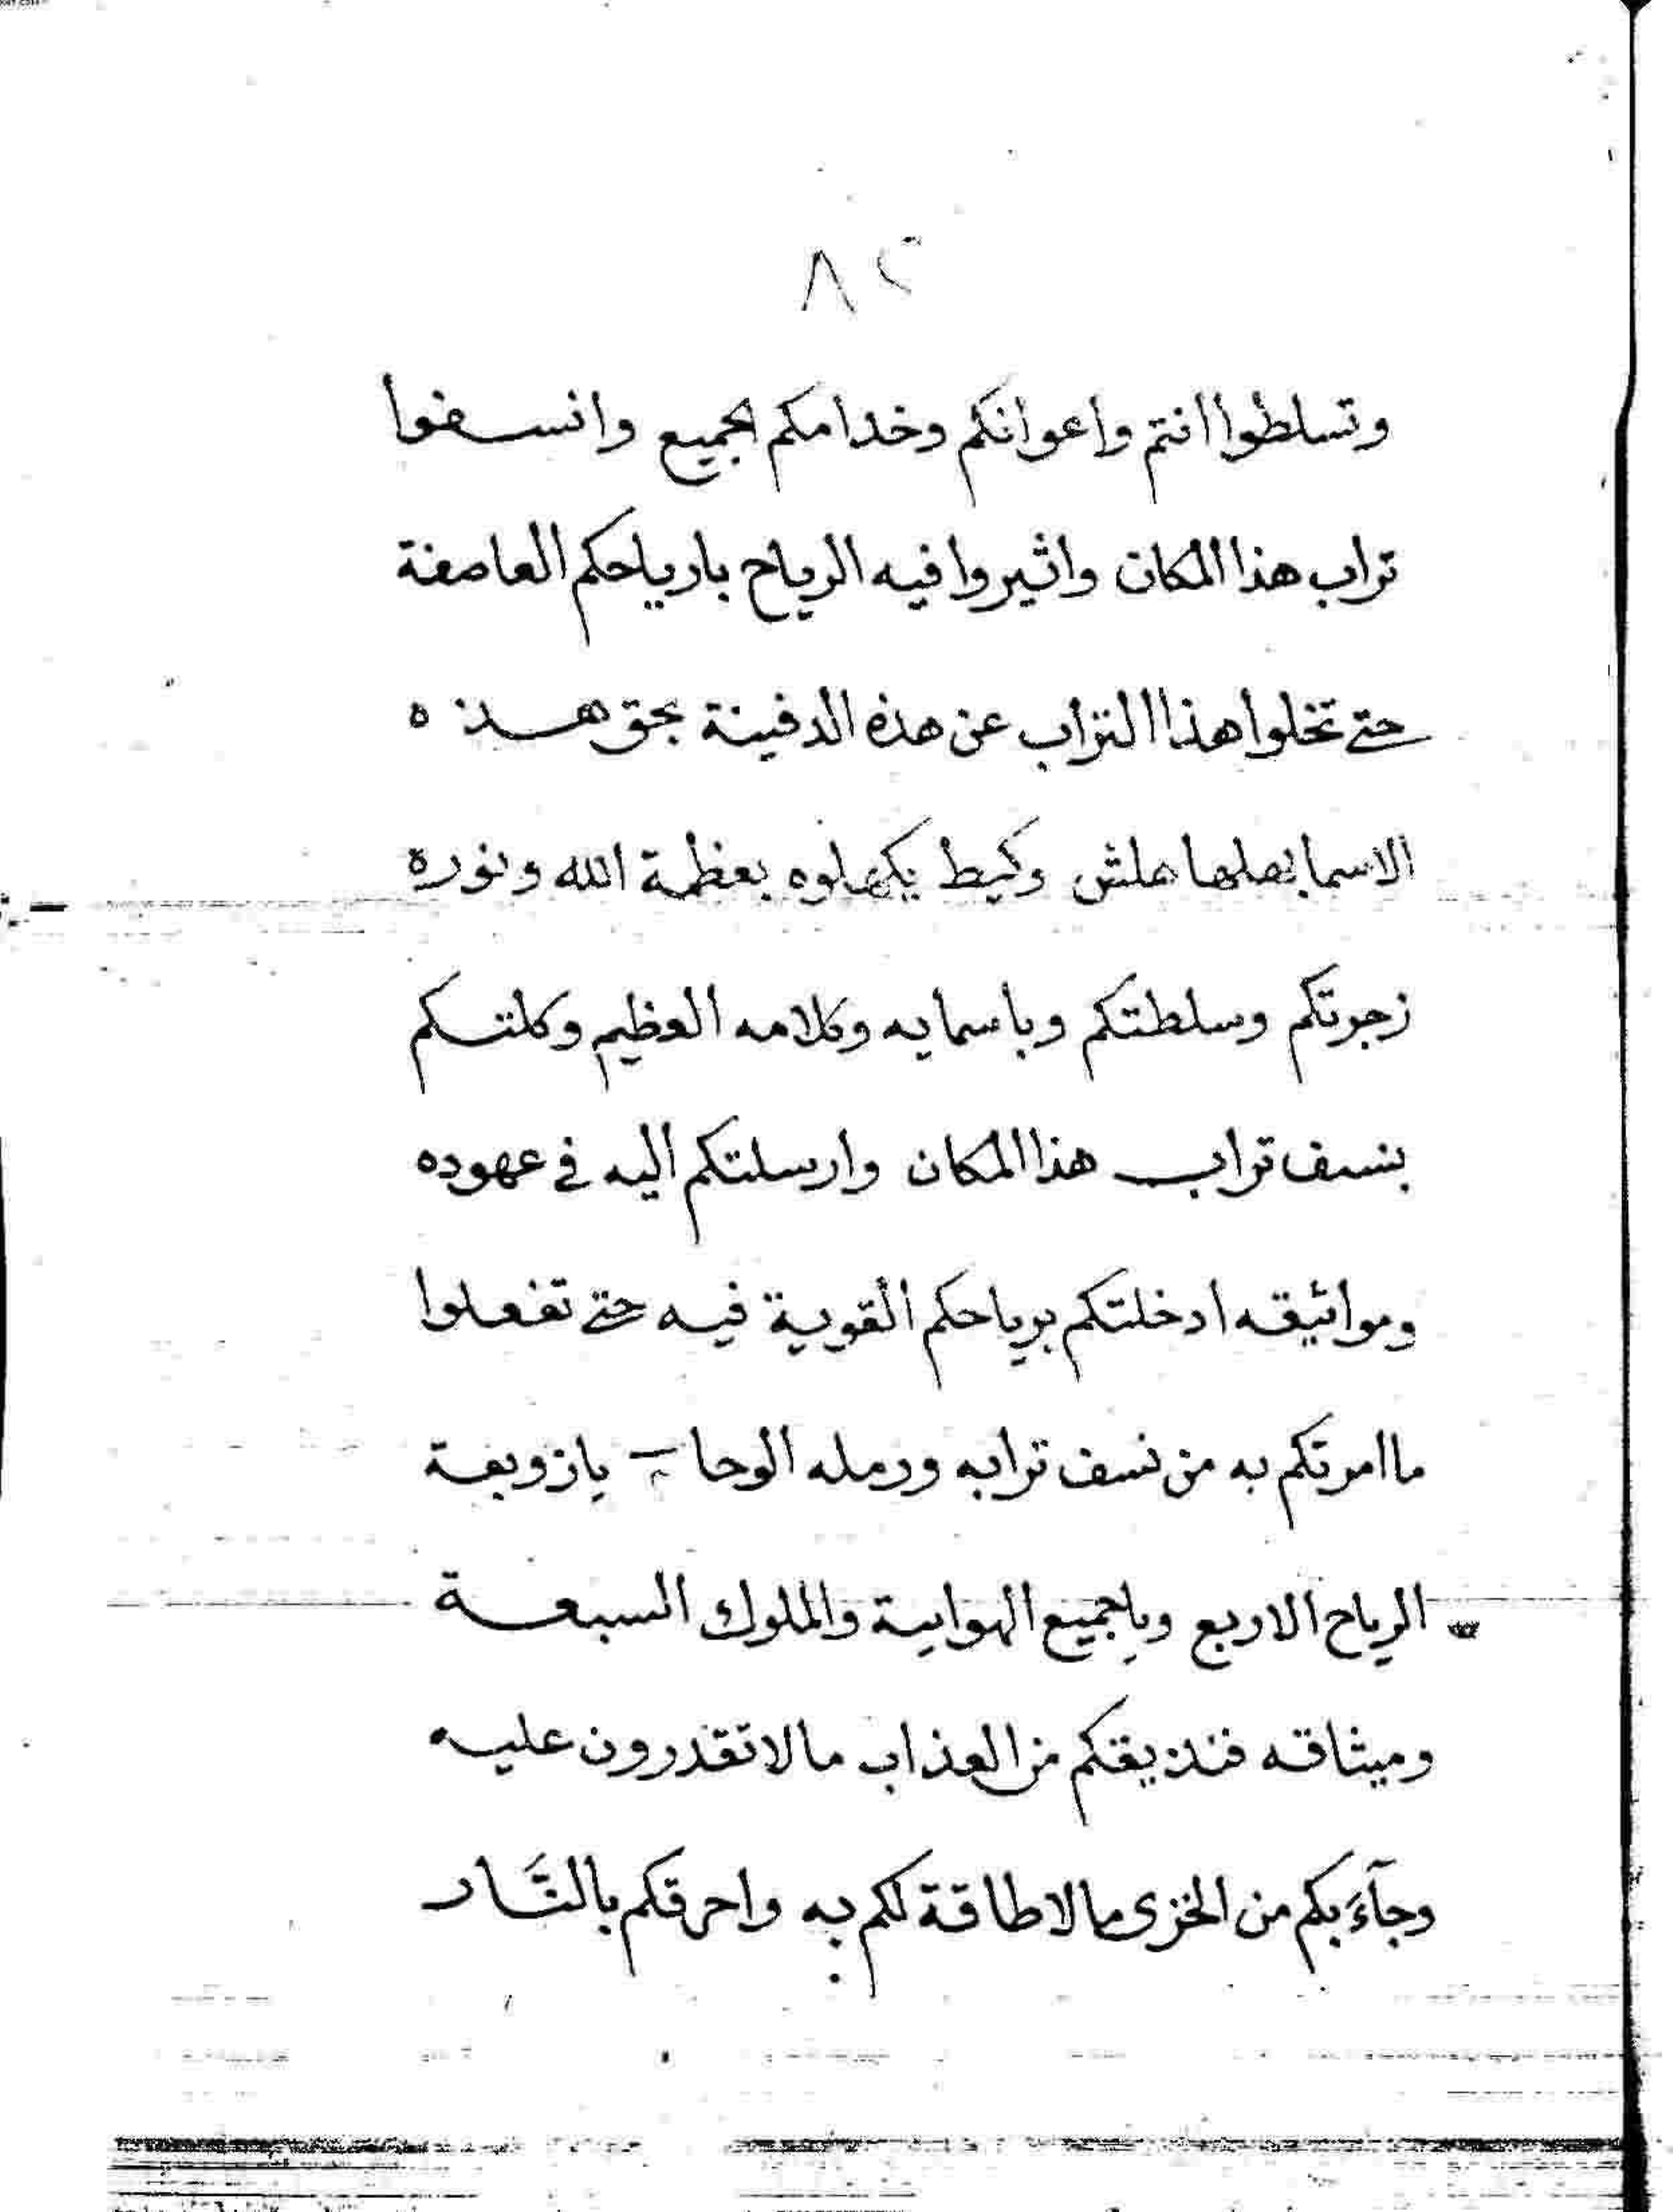 ٨٢
وتسلطوا انتم واعوانكم وخدامكم الجميع وانسفوا
تراب هذا المكان واثيروا فيه الرياح بارياحكم العاصفة
حتى تخلوا هذا التراب عن هذه الدفينة بحق هذه
الاسما بعلها هلش وكيط يكهلوه بعظمة الله ونوره
زجرتكم وسلطتكم وباسمايه وكلامه العظيم وكلتكم
بنسف تراب هذا المكان وارسلتكم اليه في عهوده
ومواثيقه ادخلتكم برياحكم القوية فيه حتى تفعلوا
ما امرتكم به من نسف ترابه ورمله الوحا ٢ يا زوبعة
الرياح الاربع ويا جميع الهوايية والملوك السبعة
وميثاقه فنذيقكم من العذاب ما لا تقدرون عليه
وجآءَ بكم من الخزى ما لا طاقة لكم به واحرقكم بالنَّار